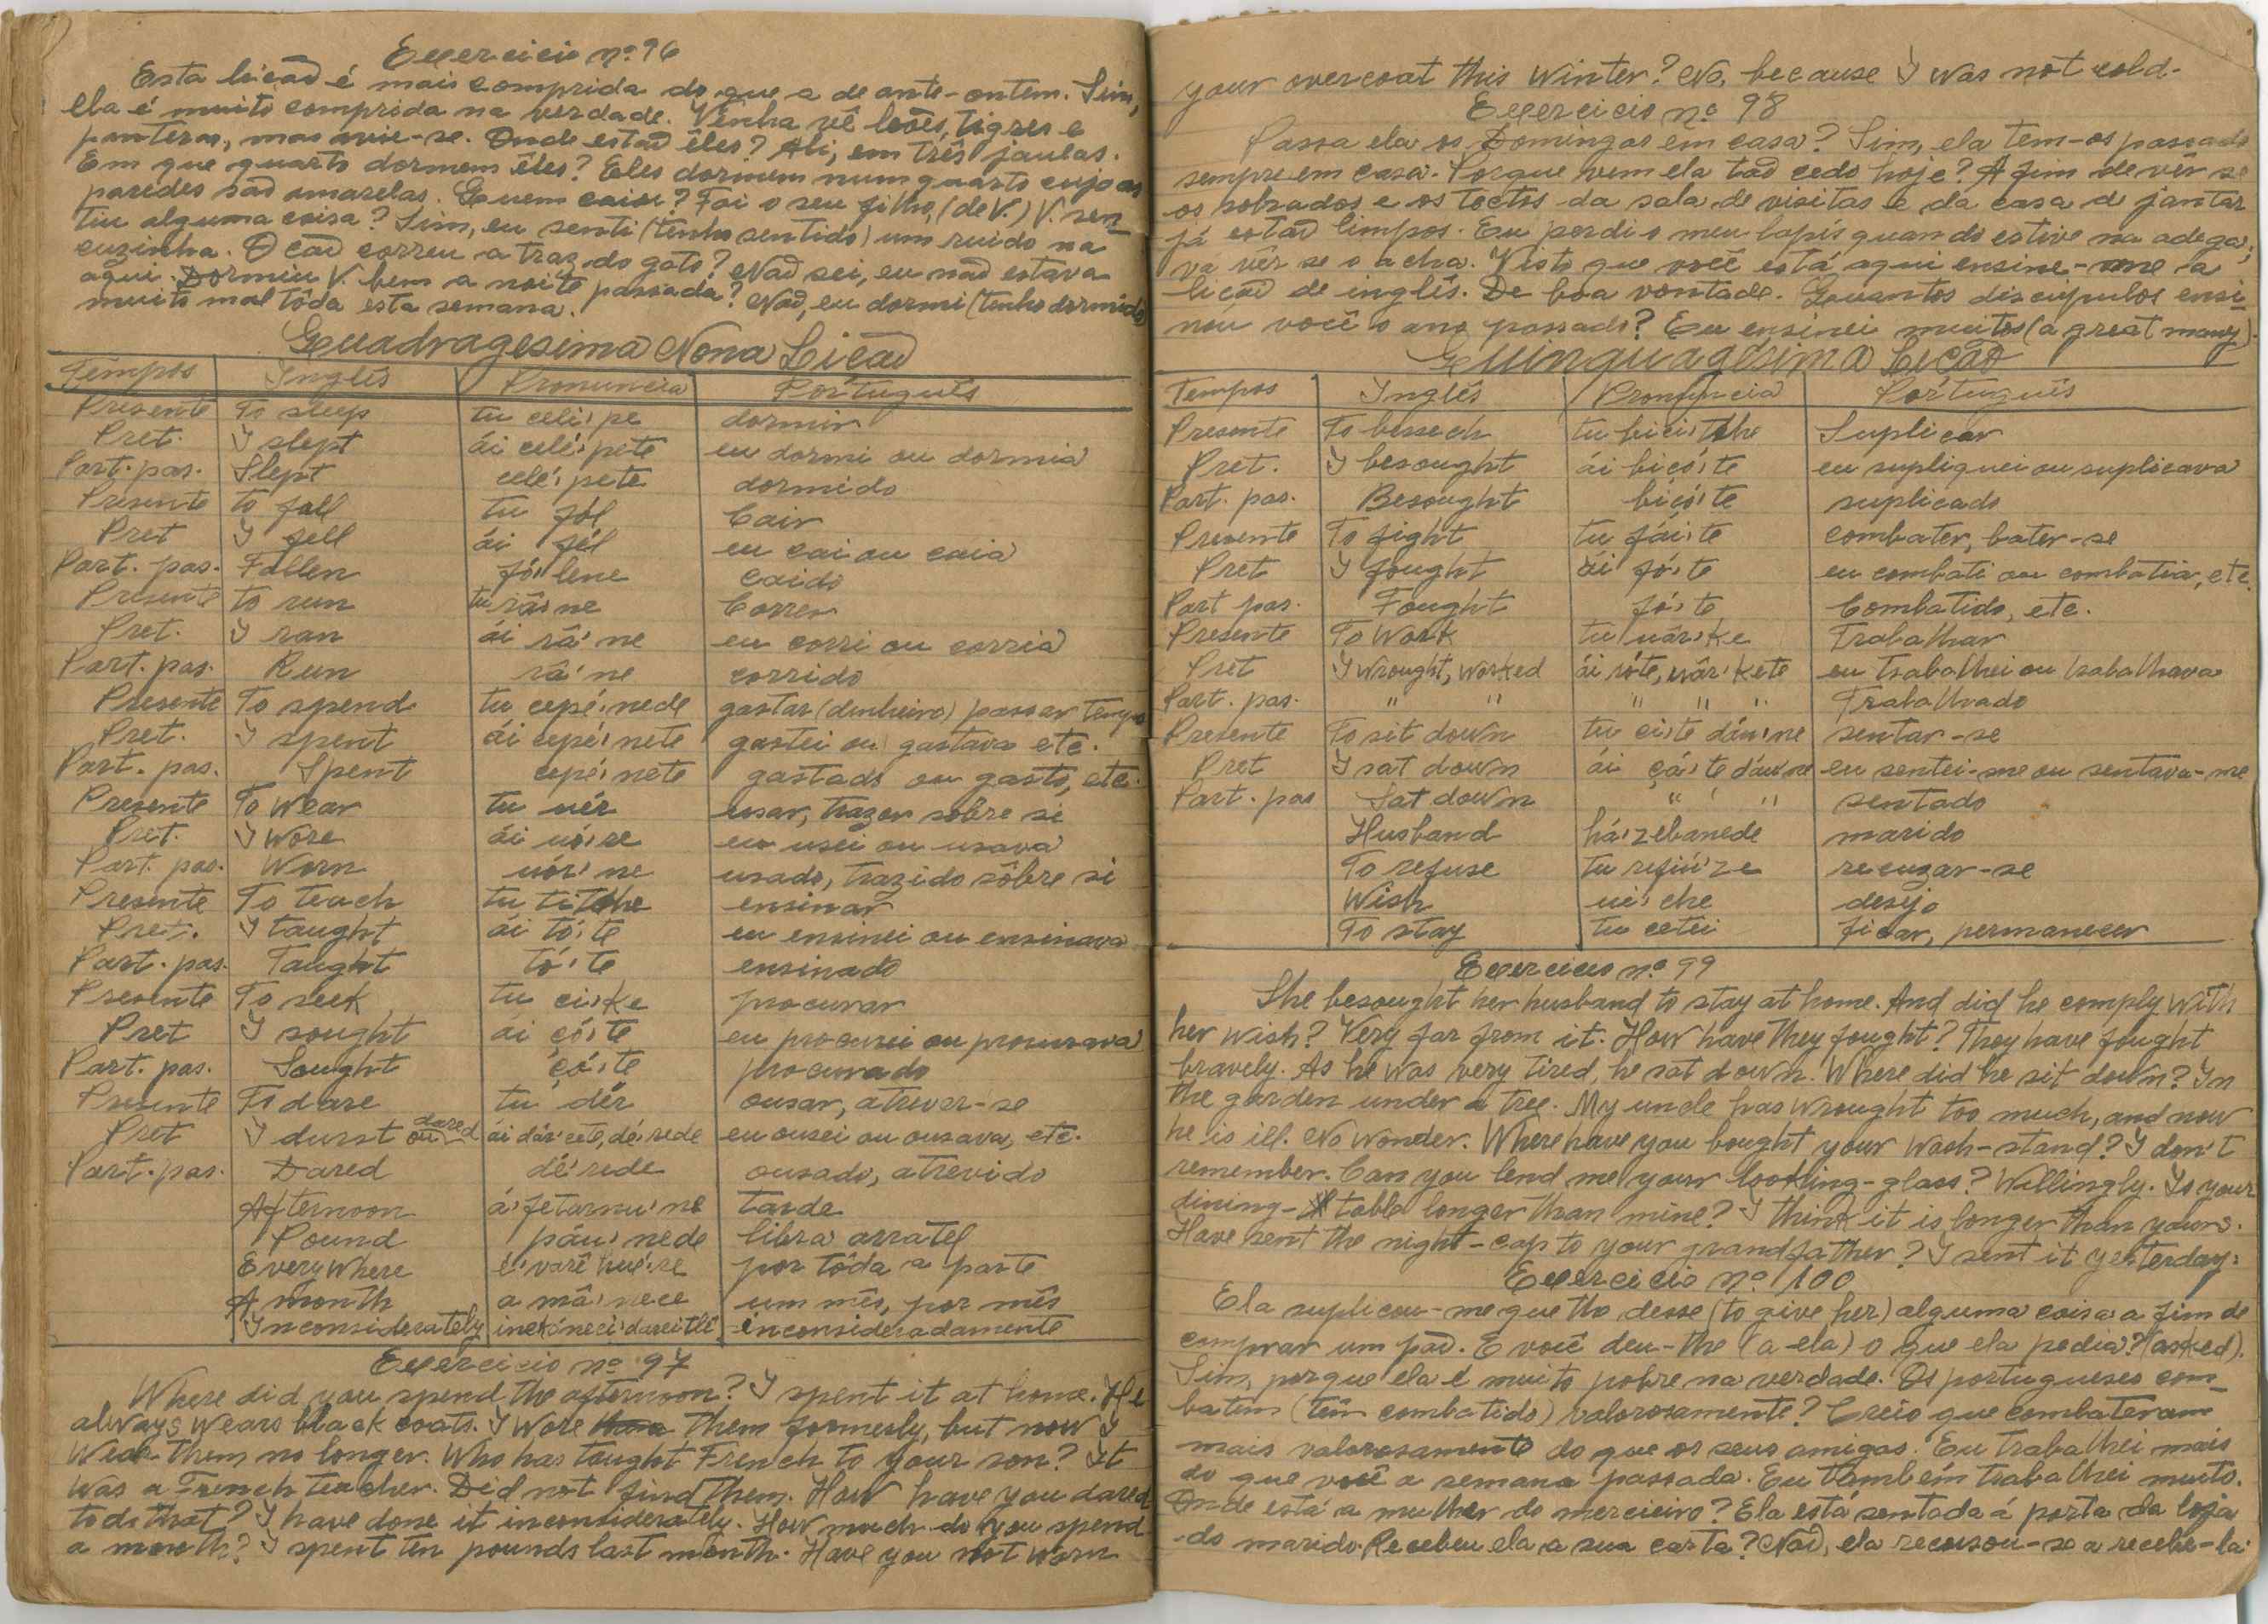 Exercicio nº 96
Esta licão é mais comprida do que a de ante-ontem. Sim,
ela é muito comprida na verdade. Venha vê leões, tigres e
panteras, mas avie-se. Onde estão êles? Ali, em três jaulas.
Em que quarto dormem êles? Eles dormem num quarto cujo as
paredes são amarelas. Quem caiu? Foi o seu filho, (de V.) V. sen_
tiu alguma coisa? Sim, eu senti (tenho sentido) um ruido na
cuzinha. O cão correu a traz do gato? Não sei, eu não estava
aqui. Dormiu V. bem a noite passada? Não, eu dormi (tenho dormido)
muito mal tôda esta semana.
Quadragesima Nona Licão
Tempos Inglês Pronuncia Português
Presente To sleep tu celi'pe dormir
Pret. I slept ái celé'pete eu dormi ou dormia
Part. pas. Slept celé'pete dormido
Presente to fall tu fól Cair
Pret I fell ái fél eu cai ou caia
Part. pas. Fallen fó'lene caido
Presente to run tu râ'ne Correr
Pret. I ran ái râ'ne eu corri ou corria
Part. pas. Run râ'ne corrido
Presente To spend tu cepé'nede gastar (dinheiro) passar tempo
Pret. I spent ái cepé'nete gastei ou gastava etc.
Part. pas. Spent cepé'nete gastado ou gasto, etc.
Presente To wear tu uér usar, trazer sôbre si
Pret. I wore ái uó're eu usei ou usava
Part. pas. Worn uór'ne usado, trazido sôbre si
Presente To teach tu titche ensinar
Pret. I taught ái tó'te eu ensinei ou ensinava
Part. pas. Taught tó'te ensinado
Presente To seek tu ci'ke procurar
Pret I sought ái çó'te eu procurei ou procurava
Part. pas. Sought çó'te procurado
Presente To dare tu dér ousar, atrever-se
Pret I durst ou dared ái dâr'cete, dé'rede eu ousei ou ousava, etc.
Part. pas. Dared dé'rede ousado, atrevido
Afternoon á'fetarnu'ne tarde
Pound páu'nede libra arratel
Everywhere é'varê hué're por tôda a parte
A month a mâ'nece um mês, por mês
Inconsiderately inekóneci'dareitlê inconsideradamente
Exercicio nº 97
Where did you spend the afternoon? I spent it at home. He
always wears black coats. I wore them formerly, but now I
wear them no longer. Who has tought French to your son? It
was a French teacher. Did not find them. How have you dared
to do that? I have done it inconsiderately. How much do you spend
a month? I spent ten pounds last month. Have you not worn
your overcoat this winter? No, because I was not cold.
Exercicio nº 98
Passa ela os Domingos em casa? Sim, ela tem-os passado
sempre em casa. Porque vem ela tão cedo hoje? A fim de vêr se
os sobrados e os tectos da sala de visitas e da casa de jantar
já estão limpos. Eu perdi o meu lapis quando estive na adega;
vá vêr se o acha. Visto que você está aqui ensine-me a
licão de inglês. De boa vontade. Quantos discipulos ensi_
nou você o ano passado? Eu ensinei muitos (a great many).
Quinquagésima Licão
Tempos Inglês Pronúncia Português
Presente To beseech tu bici'tche Suplicar
Pret. I besought ái biçó'te eu supliquei ou suplicava
Part. pas. Besought biçó'te suplicado
Presente To fight tu fái'te combater, bater-se
Pret I fought ái fó'te eu combati ou combatia, etc.
Part pas. Fought fó'te Combatido, etc.
Presente To Work tu uâr'ke Trabalhar
Pret I wrought, worked ái róte, uâr'kete eu trabalhei ou trabalhava
Part. pas. " " " " " Trabalhado
Presente To sit down tu ci'te dáu'ne sentar-se
Pret I sat down ái çá'te dáu'ne eu sentei-me ou sentava-me
Part. pas Sat down " ' " sentado
Husband há'zebanede marido
To refuse tu refiú'ze recuzar-se
Wish uí'che desejo
To stay tu cetêi ficar, permanecer
Exercicio nº 99
She besought her husband to stay at home. And did he comply with
her wish? Very far from it. How have they fought? They have fought
bravely. As he was very tired, he sat down. Where did he sit down? In
the garden under a tree. My uncle has wrought too much, and now
he is ill. No wonder. Where have you bought your wash-stand? I don't
remember. Can you lend me your looking-glass? Willingly. Is your
dining-table longer than mine? I think it is longer than yours.
Have sent the night-cap to your grandfather? I sent it yesterday.
Exercicio nº 100
Ela suplicou-me que lho desse (to give her) alguma coisa a fim de
comprar um pão. E você deu-lhe (a ela) o que ela pedia? (asked).
Sim, porque ela é muito pobre na verdade. Os portugueses com_
batem (têm combatido) valorosamente? Creio que combateram
mais valorosamente do que os seus amigos. Eu trabalhei mais
do que você a semana passada. Eu também trabalhei muito.
Onde está a mulher do mercieiro? Ela está sentada á porta da loja
do marido. Recebeu ela a sua carta? Não, ela recusou-se a recebe-la.